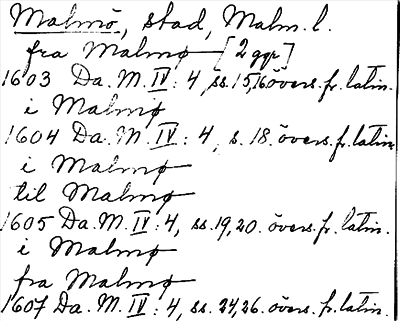 Malmö, stad, Malm. l.
fra Malmø [2 ggr]
1603 Da. M. IV: 4, ss. 15, 16 övers. fr. latin.
i Malmø
1604 Da. M. IV: 4, s. 18. övers. fr. latin.
i Malmø
til Malmø
1605 Da. M. IV: 4, ss. 19, 20. övers. fr. latin.
i Malmø
fra Malmø
1607 Da. M. IV: 4, ss. 24, 26. övers. fr. latin.